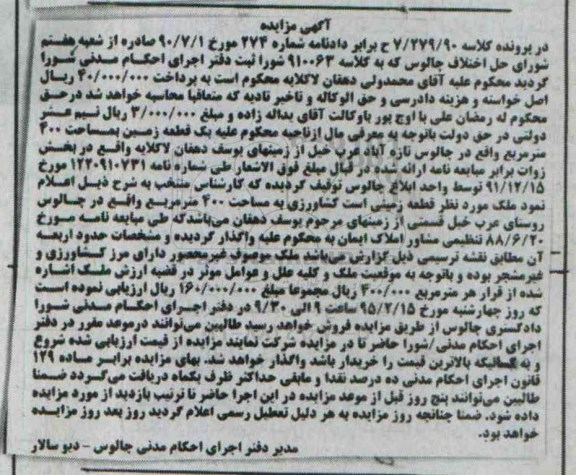 آگهی مزایده
در پرونده کلاسه ۷/۲۷۹/۹۰ ح برابر دادنامه شماره ۲۷۴ مورخ ۹۰/۷/۱ صادره از شعبه هفتم
شورای حل اختلاف چالوس که به کلاسه ۹۱۰۰۶۳ شورا ثبت دفتر اجرای احکام مدنی شورا
گردید محکوم علیه آقای محمدولی دهقان لاکلایه محکوم است به پرداخت ۴۰/۰۰۰/۰۰۰ ریال
اصل خواسته و هزینه دادرسی و حق الوکاله و تاخیر تادیه که متعاقبا محاسبه خواهد شد در حق
محکوم له رمضان علی با اوج پور باوکالت آقای یداله زاده و مبلغ ۳/۰۰۰/۰۰۰ ریال نیم عشر
دولتی در حق دولت باتوجه به معرفی مال ازناحیه محکوم علیه یک قطعه زمین بمساحت ۴۰۰
مترمربع واقع در چالوس تازه آباد عرب خیل از زمینهای یوسف دهقان لاکلایه واقع در بخش
زوات برابر مبایعه نامه ارائه شده در قبال مبلغ فوق الاشعار طی شماره نامه ۱۲۲۰۹۱۰۷۳۱ مورخ
۹۱/۱۲/۱۵ توسط واحد ابلاغ چالوس توقیف گردیده که کارشناس منتخب به شرح ذیل اعلام
نمود ملک مورد نظر قطعه زمینی است کشاورزی به مساحت ۴۰۰ مترمربع واقع در چالوس
روستای عرب خیل قسمتی از زمینهای مرحوم یوسف دهقان میباشدکه طی مبایعه نامه مورخ
۸۸/۶/۲۰ تنظیمی مشاور املاک ایمان به محکوم علیه واگذار گردیده و مشخصات حدود اربعه
آن مطابق نقشه ترسیمی ذیل گزارش می‌باشد ملک موصوف غیرمحصور دارای مرز کشاورزی و
غیرمشجر بوده و باتوجه به موقعیت ملک و کلیه علل و عوامل موثر در قضیه ارزش ملک اشاره
شده از قرار هر مترمربع ۴۰۰/۰۰۰ ریال مجموعا مبلغ ۱۶۰/۰۰۰/۰۰۰ ریال ارزیابی نموده است
که روز چهارشنبه مورخ ۹۵/۲/۱۵ ساعت ۹ الی ۹/۳۰ در دفتر اجرای احکام مدنی شورا
دادگستری چالوس از طریق مزایده فروش خواهد رسید طالبین می‌توانند درموعد مقرر در دفتر
اجرای احکام مدنی/شورا حاضر تا در مزایده شرکت نمایند مزایده از قیمت ارزیابی شده شروع
و به کسانیکه بالاترین قیمت را خریدار باشد واگذار خواهد شد. بهای مزایده برابر ماده ۱۲۹
قانون اجرای احکام مدنی ده درصد نقدا و مابقی حداکثر ظرف یکماه دریافت می‌گردد ضمنا
طالبین می‌توانند پنج روز قبل از موعد مزایده در این اجرا حاضر تا ترتیب بازدید از مورد مزایده
داده شود. ضمنا چنانچه روز مزایده به هر دلیل تعطیل رسمی اعلام گردید روز بعد روز مزایده
خواهد بود.
مدیر دفتر اجرای احکام مدنی چالوس - دیو سالار